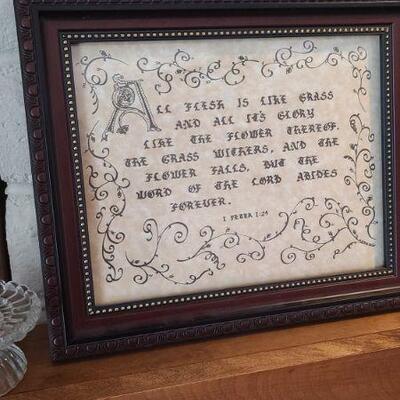 ALL FLESH IS LIKE GRASS
AND ALL IT'S GLORY
LIKE THE FLOWER THEREOF.
THE GRASS WITHERS, AND THE
FLOWER FALLS, BUT THE
WORD OF THE LORD ABIDES
FOREVER.
I PETER 1:24